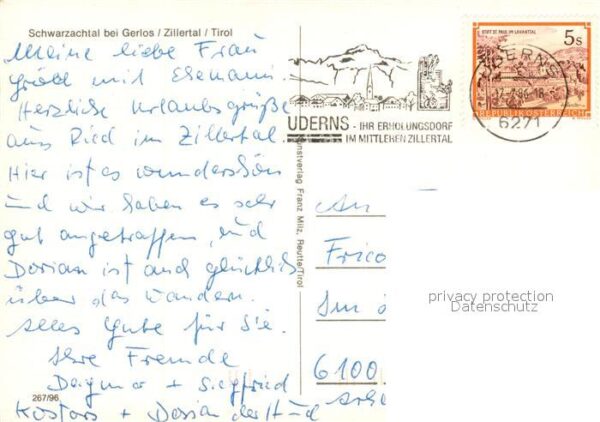 Schwarzachtal bei Gerlos / Zillertal / Tirol
Meine liebe Frau
Groll mit Ehemann.
Herzliche Urlaubsgrüße
aus Ried im Zillertal.
Hier ist es wunderschön
und wir haben es sehr
gut angetroffen, und
Dorian ist auch glücklich
über das Wandern.
Alles Gute für Sie.
Ihre Freunde
Dagmar + Siegfried
+ Dorian der Hund
267/96
UDERNS - IHR ERHOLUNGSDORF
IM MITTLEREN ZILLERTAL
STIFT ST. PAUL IM LAVANTTAL
5 S
REPUBLIK ÖSTERREICH
UDERNS
6271
Kunstverlag Franz Milz, Reutte/Tirol
An
Frico
Im
6100
privacy protection
Datenschutz